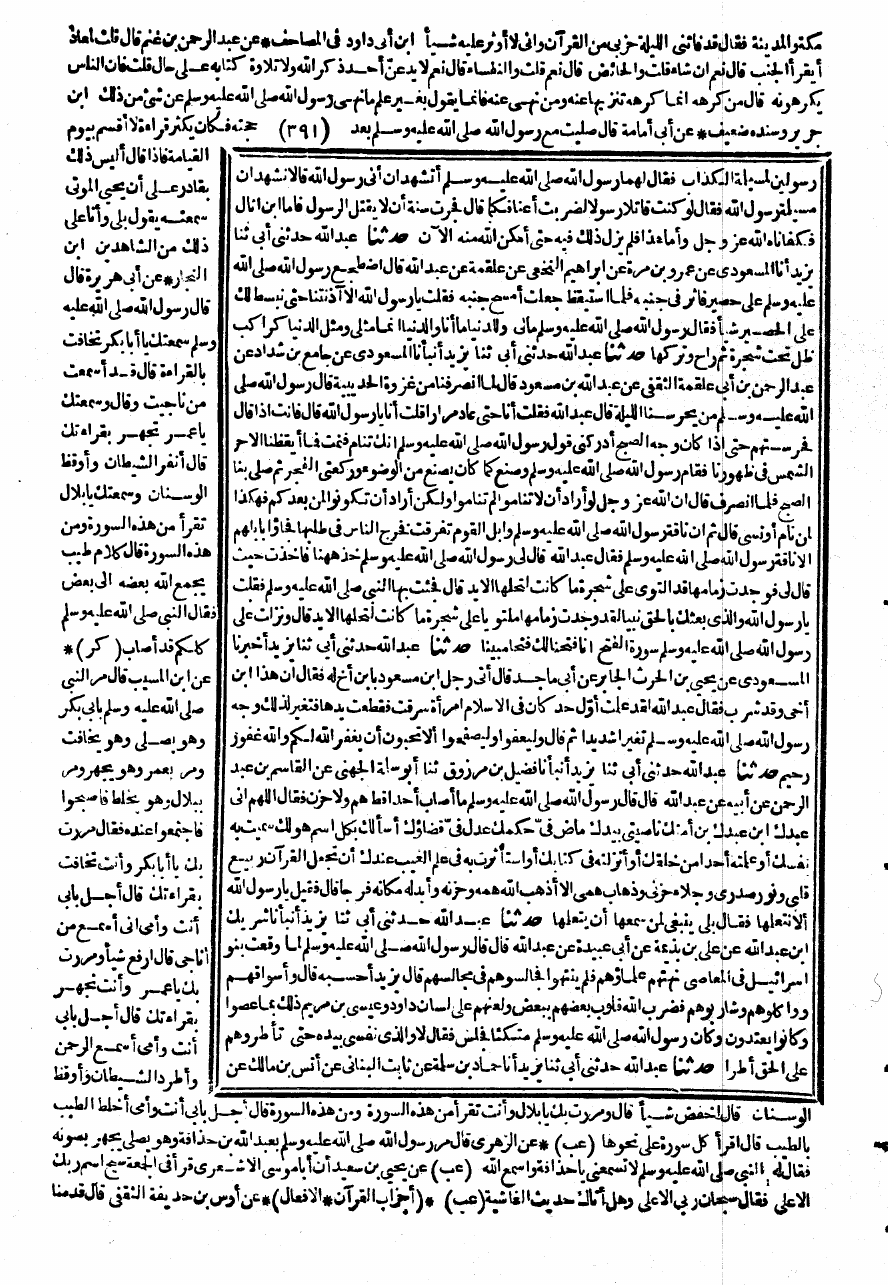 مكتو المدينة فقال قد فاتني الليلة حزبي من القرآن واني لا أوثر عليه شيأ ابن أبي داود في المصاحف * عن عبد الرحمن بن غنم قال قلت لمعاذ
أيقرأ الجنب قال نعم ان شاء قلت والحائض قال نعم قلت والنفساء قال نعم لا يدعن أحد ذكر الله ولا تلاوة كتابه على حال قلت فان الناس
يكرهونه قال من كرهه انما كرهه تنزيها عنه ومن نهى عنه فانما يقول بغير علم ما نهى رسول الله صلى الله عليه وسلم عن شئ من ذلك ابن
جرير وسنده ضعيف * عن أبي أمامة قال صليت مع رسول الله صلى الله عليه وسلم بعد (٣٩١) حجته فكان يكثر قراءة لا أقسم بيوم
رسولين لمسيلمة الكذاب فقال لهما رسول الله صلى الله عليه وسلم أتشهدان أني رسول الله قالا نشهد ان
مسيلمة رسول الله فقال لو كنت قاتلا رسولا لضربت أعناقكما قال فجرت سنة أن لا يقتل الرسول فاما ابن اثال
فكفاناه الله عز وجل وأما هذا فلم يزل ذلك فيه حتى أمكن الله منه الآن حدثنا عبد الله حدثني أبي ثنا
يزيد أنا المسعودي عن عمرو بن مرة عن ابراهيم النخعي عن علقمة عن عبد الله قال اضطجع رسول الله صلى الله
عليه وسلم على حصير فاثر في جنبه فلما استيقظ جعلت أمسح جنبه فقلت يا رسول الله الا آذنتنا حتى نبسط لك
على الحصير شيأ فقال رسول الله صلى الله عليه وسلم مالي وللدنيا ما أنا والدنيا انما مثلي ومثل الدنيا كراكب
ظل تحت شجرة ثم راح وتركها حدثنا عبد الله حدثني أبي ثنا يزيد أنبأنا المسعودي عن جامع بن شداد عن
عبد الرحمن بن أبي علقمة الثقفي عن عبد الله بن مسعود قال لما انصرفنا من غزوة الحديبية قال رسول الله صلى
الله عليه وسلم من يحرسنا الليلة قال عبد الله فقلت أنا حتى عاد مرارا قلت أنا يا رسول الله قال فانت اذا قال
فحرستهم حتى اذا كان وجه الصبح أدركني قول رسول الله صلى الله عليه وسلم انك تنام فنمت فما أيقظنا الا حر
الشمس في ظهورنا فقام رسول الله صلى الله عليه وسلم وصنع كما كان يصنع من الوضوء وركعتي الفجر ثم صلى بنا
الصبح فلما انصرف قال ان الله عز وجل لو أراد أن لا تناموا لم تناموا ولكن أراد أن تكونوا لمن بعدكم فهكذا
لمن نام أو نسى قال ثم ان ناقة رسول الله صلى الله عليه وسلم وابل القوم تفرقت فخرج الناس في طلبها فجاؤا بابلهم
الا ناقة رسول الله صلى الله عليه وسلم فقال عبد الله قال لي رسول الله صلى الله عليه وسلم خذ ههنا فاخذت حيث
قال لي فوجدت زمامها قد التوى على شجرة ما كانت لتحلها الا يد قال فجئت بها النبي صلى الله عليه وسلم فقلت
يا رسول الله والذي بعثك بالحق نبيا لقد وجدت زمامها ملتويا على شجرة ما كانت لتحلها الا يد قال ونزلت على
رسول الله صلى الله عليه وسلم سورة الفتح انا فتحنا لك فتحا مبينا حدثنا عبد الله حدثني أبي ثنا يزيد أخبرنا
المسعودي عن يحيى بن الحرث الجابر عن أبي ماجد قال أتى رجل ابن مسعود بابن أخ له فقال ان هذا ابن
أخي وقد شرب فقال عبد الله لقد علمت أول حد كان في الاسلام امرأة سرقت فقطعت يدها فتغير لذلك وجه
رسول الله صلى الله عليه وسلم تغيرا شديدا ثم قال وليعفوا وليصفحوا ألا تحبون أن يغفر الله لكم والله غفور
رحيم حدثنا عبد الله حدثني أبي ثنا يزيد أنبأنا فضيل بن مرزوق ثنا أبو سلمة الجهني عن القاسم بن عبد
الرحمن عن أبيه عن عبد الله قال قال رسول الله صلى الله عليه وسلم ما أصاب أحدا قط هم ولا حزن فقال اللهم اني
عبدك ابن عبدك بن أمتك ناصيتي بيدك ماض في حكمك عدل في قضاؤك أسألك بكل اسم هو لك سميت به
نفسك أو علمته أحدا من خلقك أو أنزلته في كتابك أو استأثرت به في علم الغيب عندك أن تجعل القرآن ربيع
قلبي ونور صدري وجلاء حزني وذهاب همي الا أذهب الله همه وحزنه وأبدله مكانه فرجا قال فقيل يا رسول الله
ألا نتعلمها فقال بلى ينبغي لمن سمعها أن يتعلمها حدثنا عبد الله حدثني أبي ثنا يزيد أنبأنا شريك
ابن عبد الله عن علي بن بذيمة عن أبي عبيدة عن عبد الله قال قال رسول الله صلى الله عليه وسلم لما وقعت بنو
اسرائيل في المعاصي نهتهم علماؤهم فلم ينتهوا فجالسوهم في مجالسهم قال يزيد أحسبه قال وأسواقهم
وواكلوهم وشاربوهم فضرب الله قلوب بعضهم ببعض ولعنهم على لسان داود وعيسى بن مريم ذلك بما عصوا
وكانوا يعتدون وكان رسول الله صلى الله عليه وسلم متكئا فجلس فقال لا والذي نفسي بيده حتى تأطروهم
على الحق أطرا حدثنا عبد الله حدثني أبي ثنا يزيد أنا حماد بن سلمة عن ثابت البناني عن أنس بن مالك عن
القيامة فاذا قال أليس ذلك
بقادر على أن يحيي الموتى
سمعته يقول بلى وأنا على
ذلك من الشاهدين ابن
النجار * عن أبي هريرة قال
قال رسول الله صلى الله عليه
وسلم سمعتك يا أبا بكر تخافت
بالقراءة قال قد أسمعت
من ناجيت وقال وسمعتك
يا عمر تجهر بقراءتك
قال أنفر الشيطان وأوقظ
الوسنان وسمعتك يا بلال
تقرأ من هذه السورة ومن
هذه السورة قال كلام طيب
يجمع الله بعضه الى بعض
فقال النبي صلى الله عليه وسلم
كلكم قد أصاب (كر) *
عن ابن المسيب قال مر النبي
صلى الله عليه وسلم بابي بكر
وهو يصلي وهو يخافت
ومر بعمر وهو يجهر ومر
ببلال وهو يخلط فاصبحوا
فاجتمعوا عنده فقال مررت
بك يا أبا بكر وأنت تخافت
بقراءتك قال أجل بابي
أنت وأمي اني أسمع من
أناجي قال ارفع شيأ ومررت
بك يا عمر وأنت تجهر
بقراءتك قال أجل بابي
أنت وأمي أسمع الرحمن
وأطرد الشيطان وأوقظ
الوسنان قال اخفض شيأ قال ومررت بك يا بلال وأنت تقرأ من هذه السورة ومن هذه السورة قال أجل بابي أنت وأمي أخلط الطيب
بالطيب قال اقرأ كل سورة على نحوها (عب) * عن الزهري قال مر رسول الله صلى الله عليه وسلم بعبد الله بن حذافة وهو يصلي يجهر بصوته
فقال له النبي صلى الله عليه وسلم لا تسمعني يا حذافة واسمع الله (عب) عن يحيى بن سعيد أن أبا موسى الاشعري قرأ في الجمعة سبح اسم ربك
الاعلى فقال سبحان ربي الاعلى وهل أتاك حديث الغاشية (عب) * (أحزاب القرآن * الافعال) * عن أوس بن حذيفة الثقفي قال قدمنا